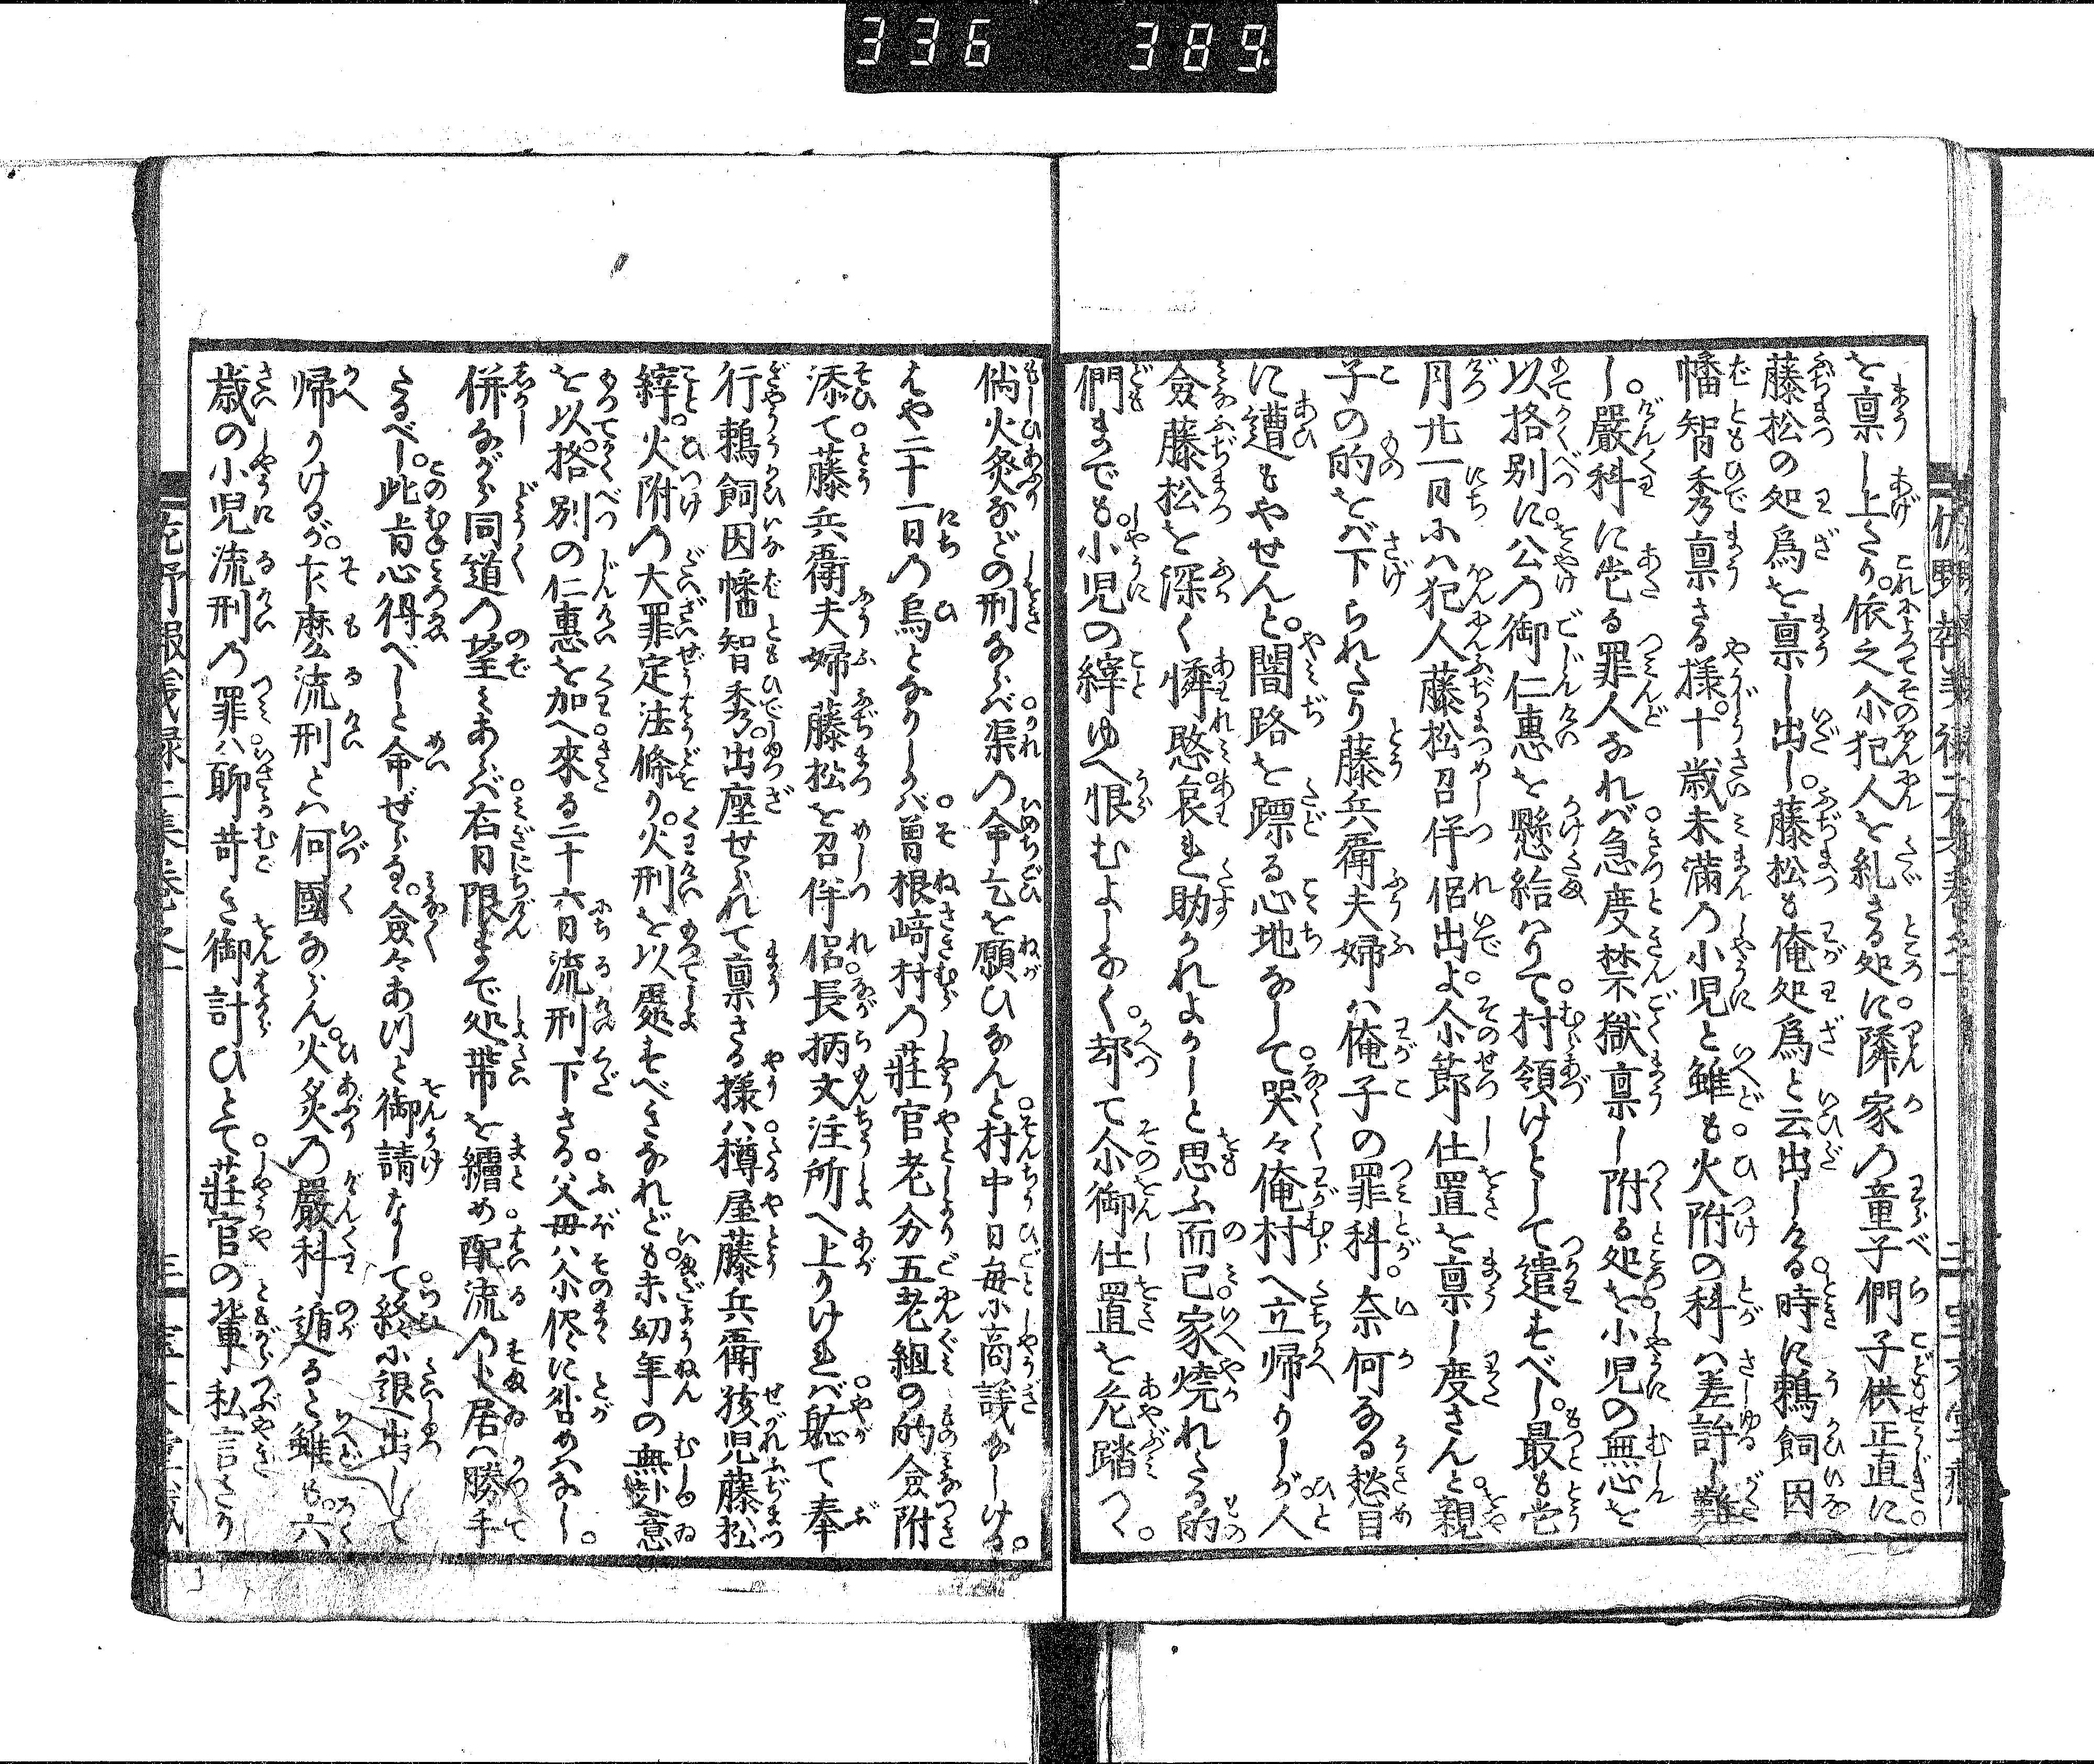 336 389
を禀し上たり。依之尒犯人を糺さる処に。隣家の童子們子供正直に。
藤松の処爲を禀し出し。藤松も俺処爲と云出しける。時に鵜飼因
幡智秀禀さる様。十歳未滿の小児と雖も。火附の科ハ差許し難
し。嚴科に當る罪人なれバ。急度禁獄禀し附る処を。小児の無心を
以格別に。公の御仁惠を懸給ハりて。村領けとして遣すべし。最も當
月廿一日にハ犯人藤松召伴侶出よ。尒節仕置を禀し度さんと。親
子の的をバ下られたり藤兵衞夫婦ハ俺子の罪科。奈何なる愁目
に遭もやせんと。闇路を蹤る心地なして。哭々俺村へ立帰りしが。人
僉藤松を深く憐愍。哀れ助かれよかしと思ふ而已。家燒れたる的
們までも。小児の縡ゆへ恨むよしなく。却て尒御仕置を危踏つゝ。
倘火炙などの刑ならバ。渠の命乞を願ひなんと。村中日毎に商議なしける。
はや二十一日の烏となりしかバ。曽根﨑村の莊官老分五老組の的僉附
添て。藤兵衞夫婦藤松を召伴侶。長柄文注所へ上りけれバ。躮て奉
行鵜飼因幡智秀。出座せられて禀さる様ハ。樽屋藤兵衞孩児藤松
縡。火附の大罪定法條り。火刑を以處すべきなれども。未幼年の無意
を以。格別の仁惠を加へ。來る二十六日流刑下さる。父母ハ尒侭に咎めなし。
併ながら同道の望ミあらバ。右日限まで処帶を纏め。配流の上居ハ勝手
たるべし。此㫖心得べしと命ぜらる。僉々あツと御請なして。終に退出して
帰りけるが。卞麽流刑とハ何國ならん。火炙の嚴科遁ると雖も。六
歳の小児流刑の罪ハ。聊苛き御計ひとて。莊官の輩私言さり